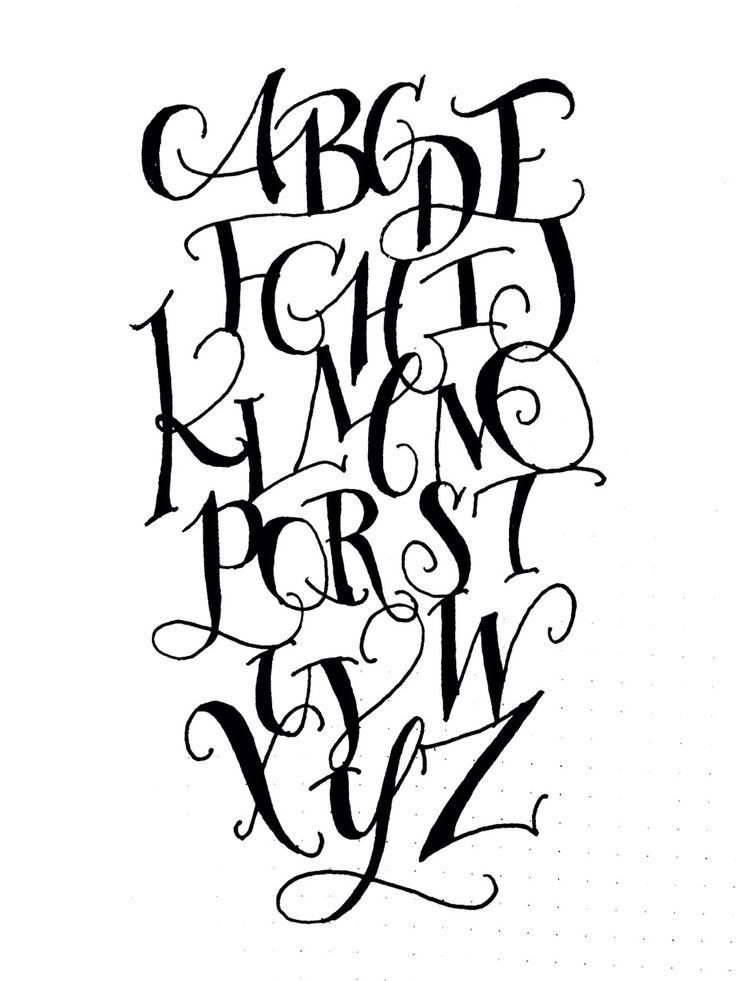 ABCDE
FGHIJ
KLMNO
PQRST
UVW
XYZ